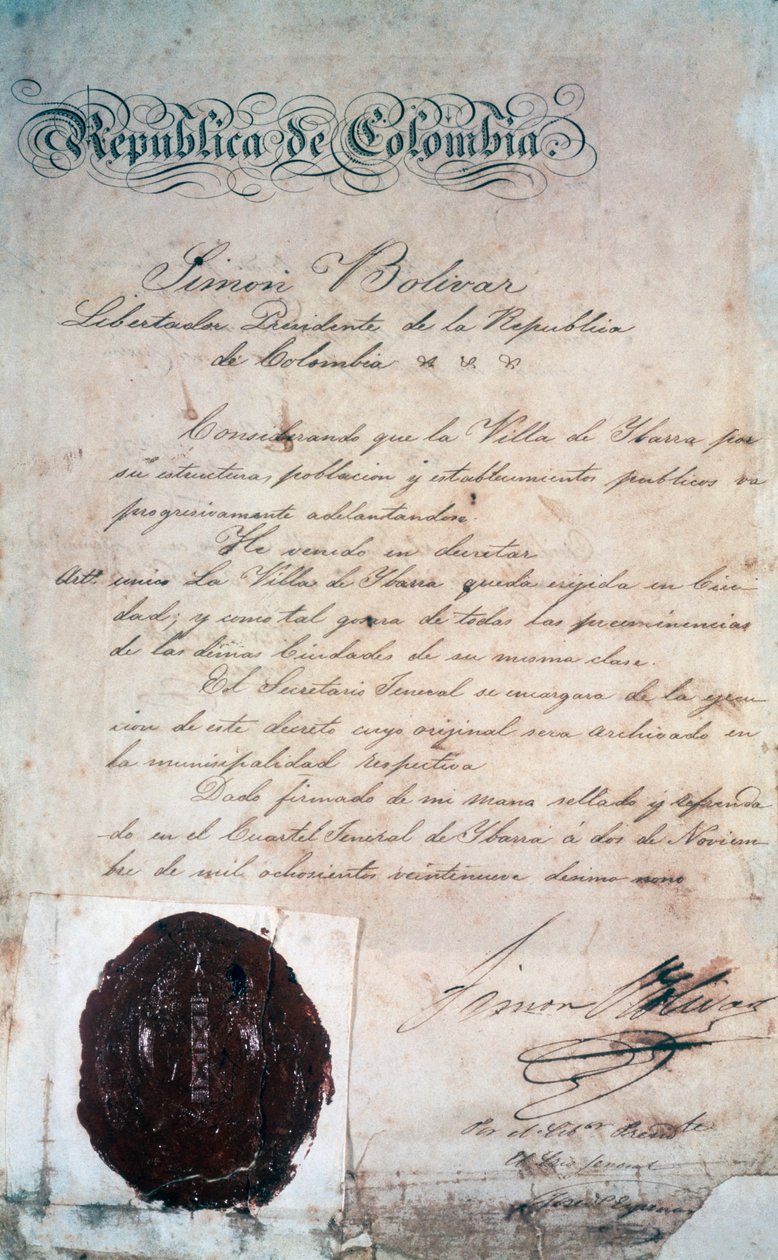 Republica de Colombia.
Simon Bolivar
Libertador Presidente de la Republica
de Colombia
Considerando que la Villa de Ybarra por
su estructura, poblacion y establecimientos publicos va
progresivamente adelantandose.
He venido en decretar
Artº. unico La Villa de Ybarra queda erijida en Ciu-
dad; y como tal gosara de todas las preeminencias
de las demas Ciudades de su misma clase.
El Secretario Jeneral se encargara de la ejecu-
cion de este decreto cuyo original sera archivado en
la munisipalidad respectiva
Dado firmado de mi mano sellado y refrenda-
do en el Cuartel Jeneral de Ybarra á dos de Noviem-
bre de mil ochosientos veintinueve desimo nono
Simon Bolivar
Por el Libºr Presidte
El Srio Jeneral